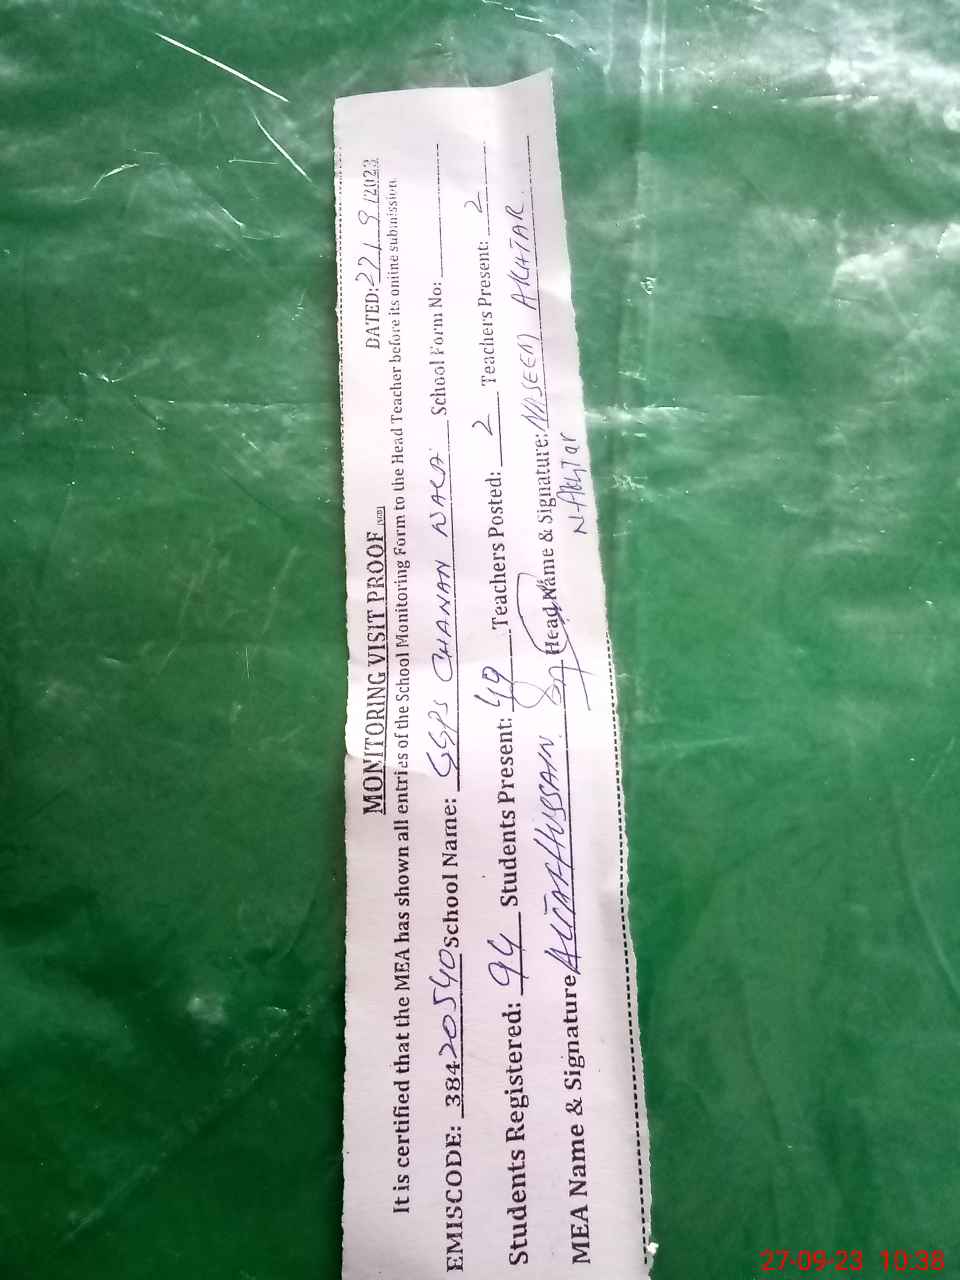 MONITORING VISIT PROOF
DATED: 27/9/2023
It is certified that the MEA has shown all entries of the School Monitoring Form to the Head Teacher before its online submission.
EMISCODE: 38420540 School Name: GGPS CHANAN WALA School Form No:
Students Registered: 94 Students Present: 49 Teachers Posted: 2 Teachers Present: 2
MEA Name & Signature HUSSAIN Head Name & Signature: NASEEM AKHTAR
N-Akhtar
27-09-23 10.38